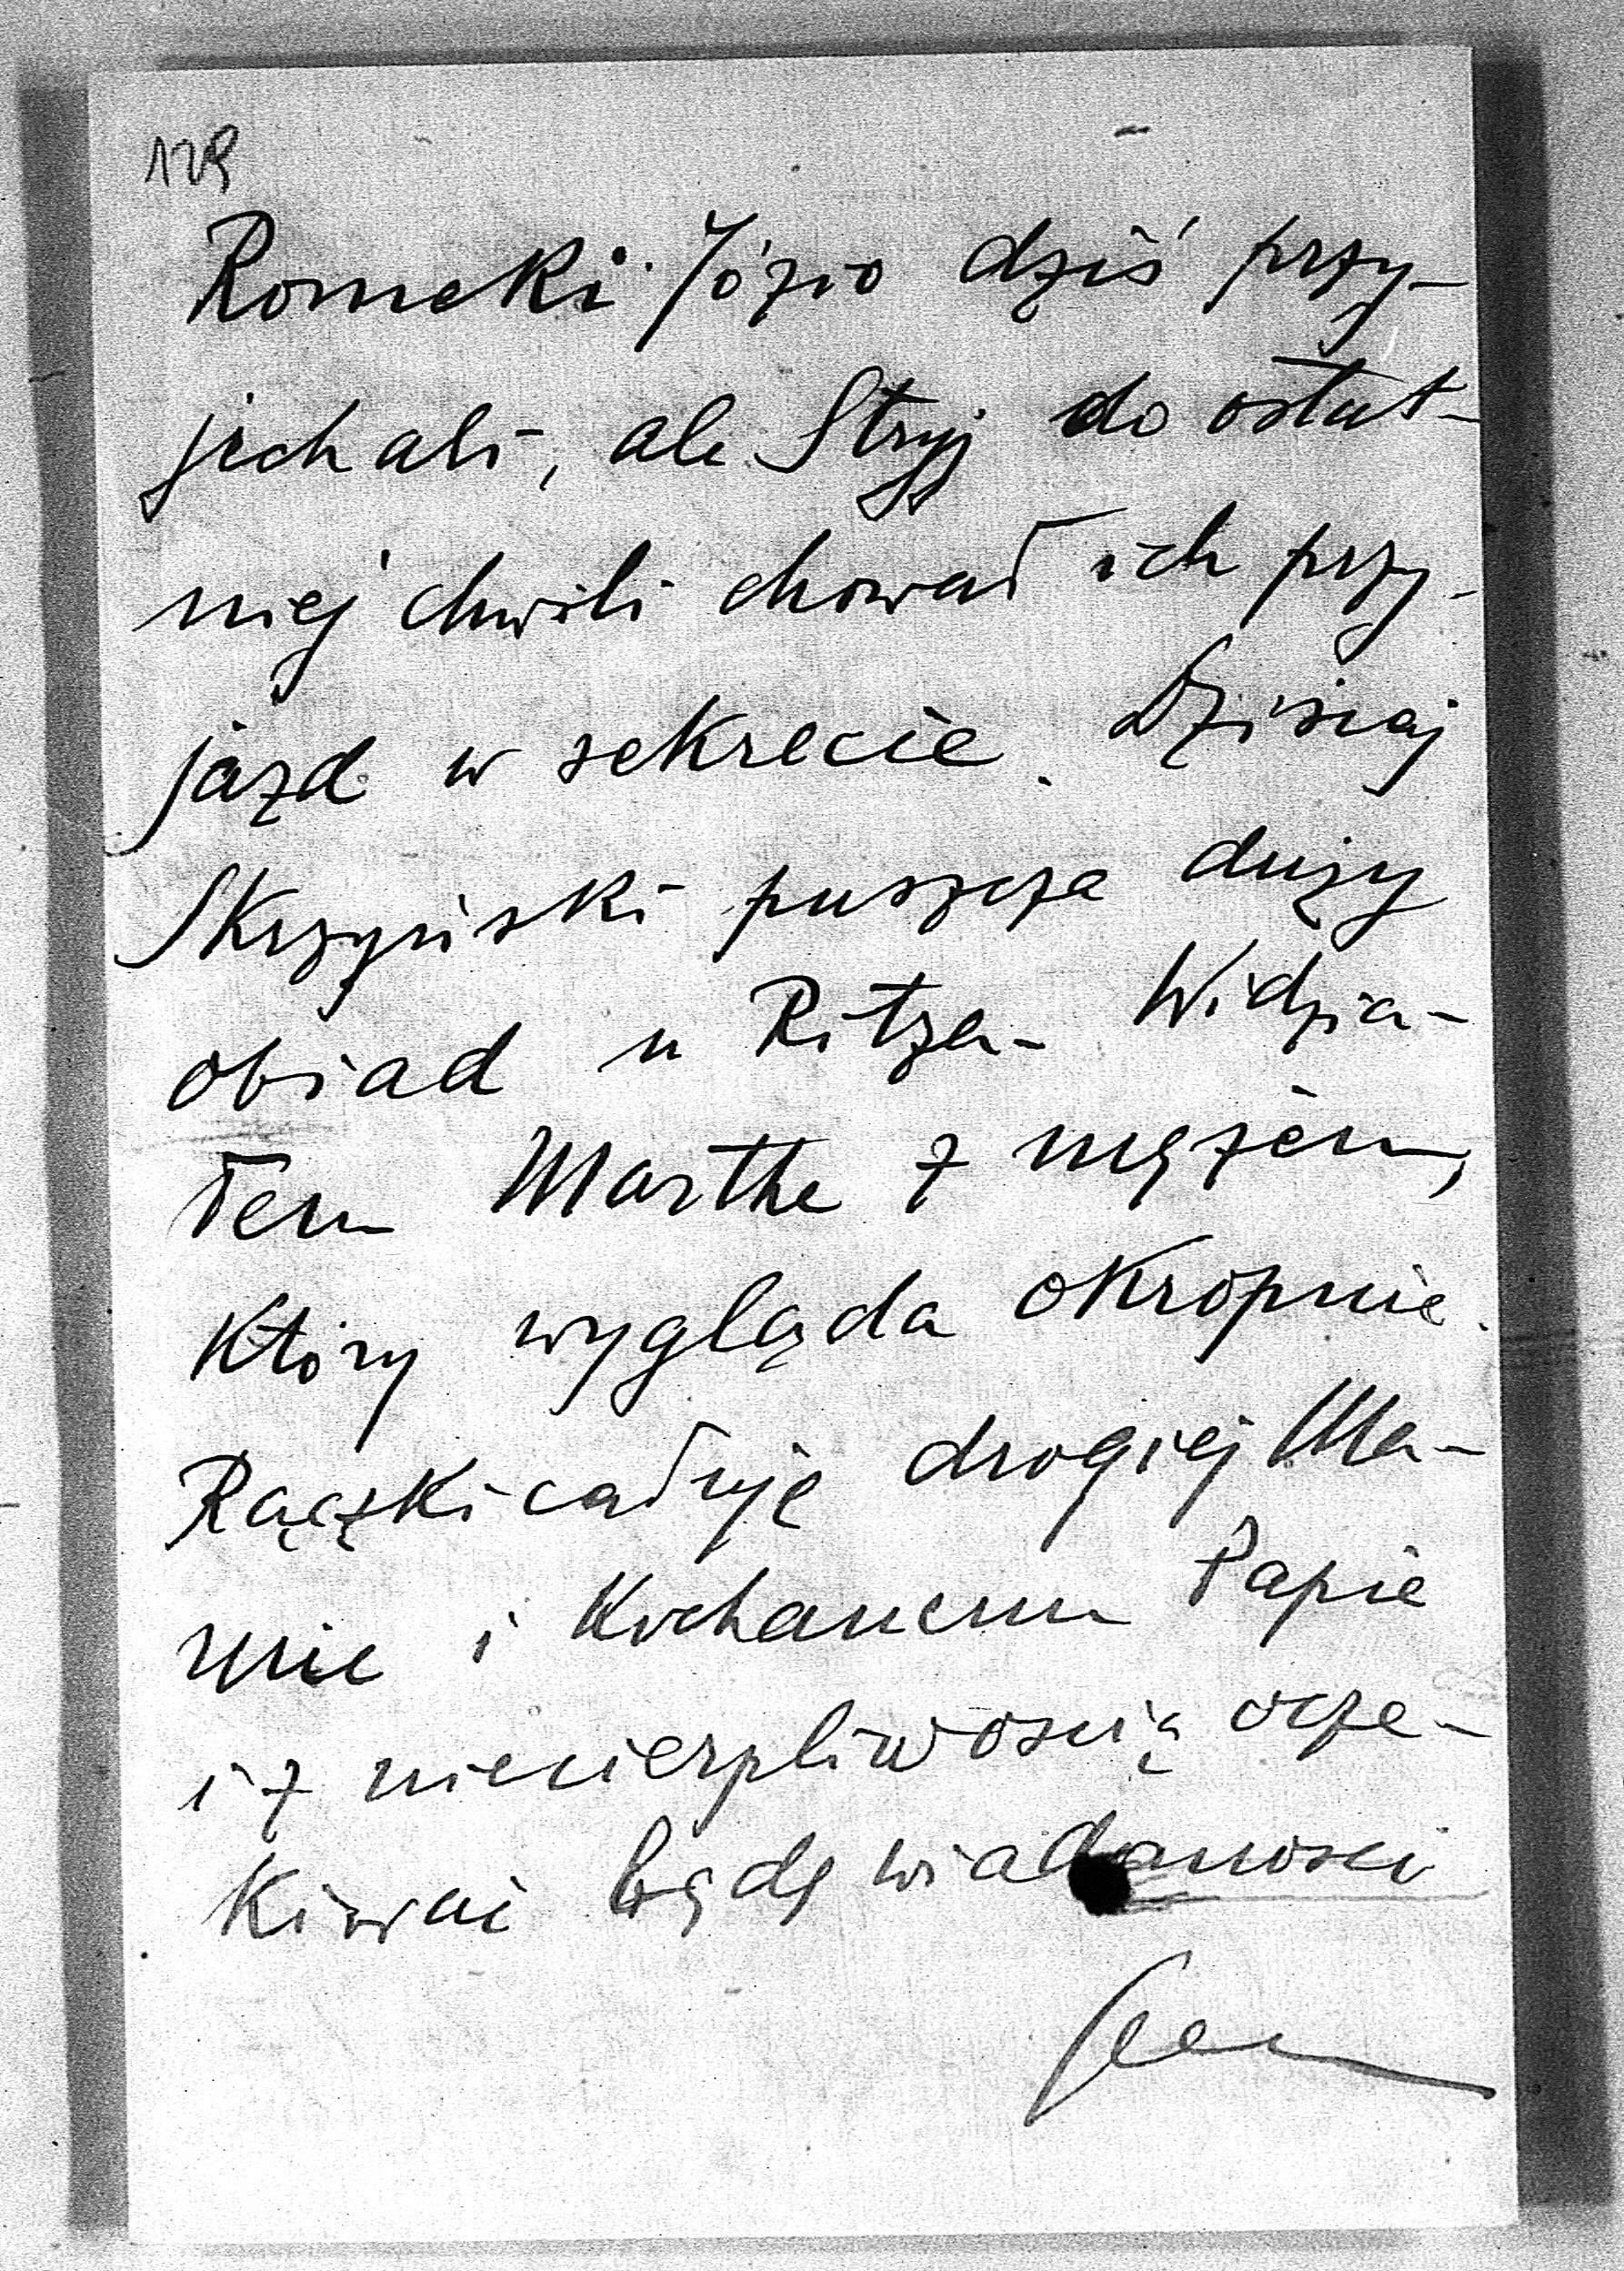 129
Romek i Józio dziś przy-
jechali, ale Stryj do ostat-
niej chwili chował ich przy-
jazd w sekrecie. Dzisiaj
Skrzyński puszcza duży
obiad u Ritza. Widzia-
łem Marthe z mężem,
który wygląda okropnie.
Rączki całuję drogiej Ma-
mie i Kochanemu Papie
i z niecierpliwością ocze-
kiwać będę wiadomości